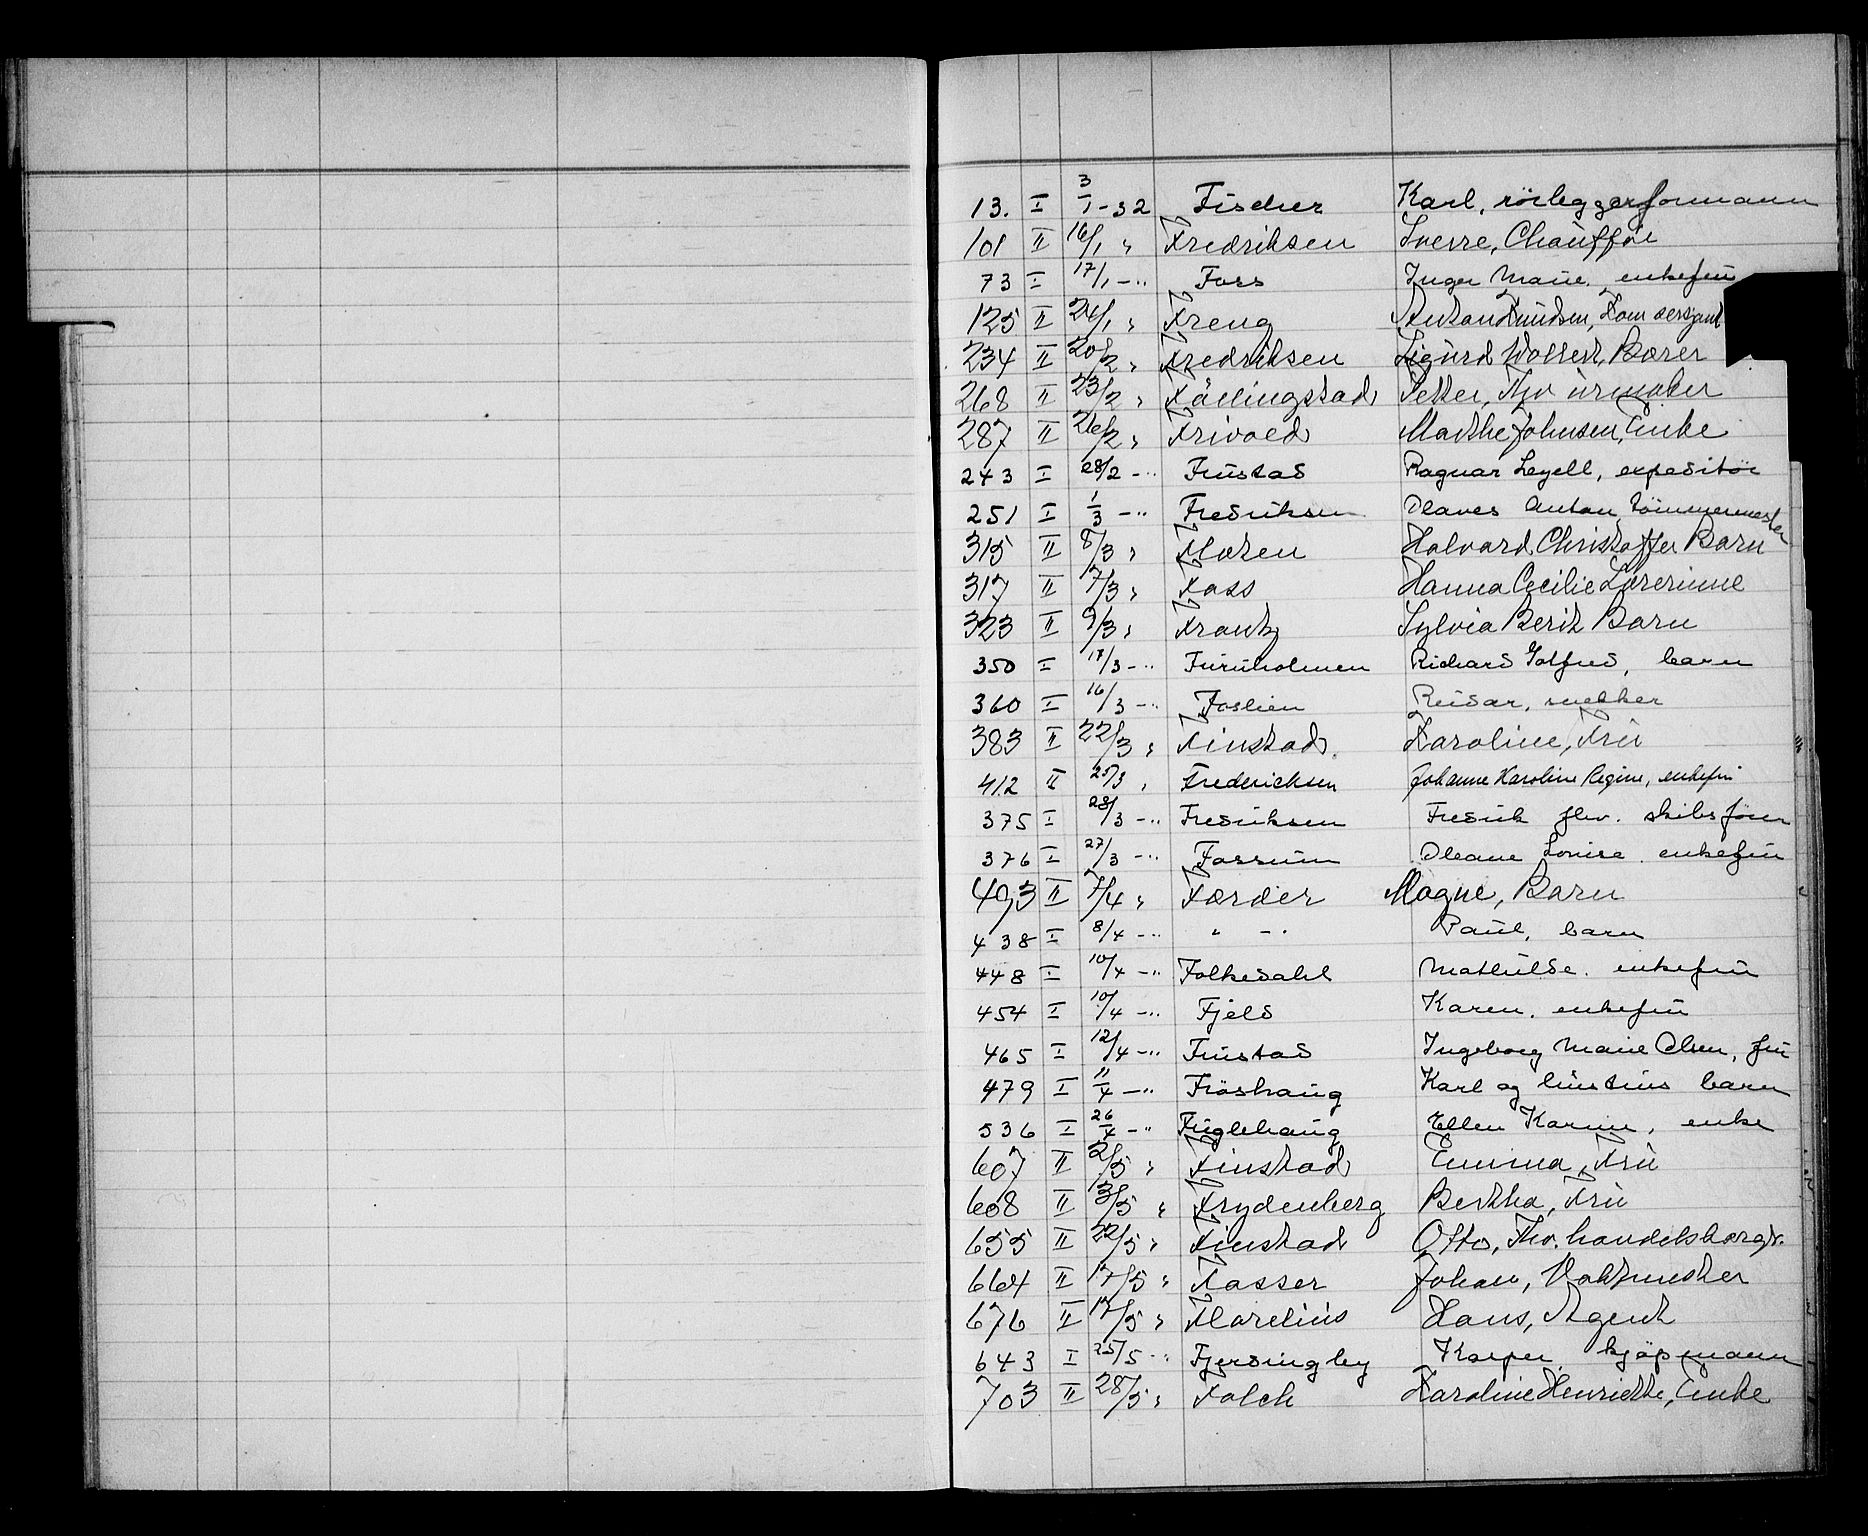 13. I 3/1-32 Fischer Karl, rörleggerformann
101 II 16/1 " Fredriksen Sverre, Chauffør
73 I 17/1 -" Foss Inger Marie. enkefru
125 II 24/1 " Freng Anton Knudsen,
234 II 20/2 " Fredriksen Sigurd Wollert, Bærer
268 II 23/2 " Petter, Fhv urmaker
287 II 26/2 " Frivold Marthe Johnsen, Enke
243 I 28/2 -" Frustad Ragnar Leyell, expeditör
251 I 1/3 -" Fredriksen Olaves Anton, tömmermester
315 II 8/3 " Floren Halvard Christoffer Barn
317 II 17/3 " Foss Hanna Cecilie Lærerinne
323 II 9/3 " Frantz Sylvia Berit Barn
350 I 17/3 -" Furuholmen Richard Gotfred, barn
360 I 16/3 -" Foslien Reidar, snekker
383 II 22/3 " Finstad. Karoline, Fru
412 II 25/3 " Fredericksen Johanne Karoline Regine, enkefru
375 I 28/3 -" Fredriksen Fredrik fhv. skibsförer
376 I 27/3 -" Fossum Oleane Lovise. enkefru
493 II 7/4 " Færder Magne, Barn
438 I 8/4 -" " -" Paul, barn
448 I 10/4 -" Folkedahl Mathilde. enkefru
454 I 10/4 -" Fjeld Karen. enkefru
465 I 12/4 -" Frustad Ingeborg Marie Olsen, fru
479 I 11/4 -" Fröshaug Karl og barn
536 I 26/4 -" Fuglehaug Ellen Karine, enke
607 II 2/5 " Finstad Emma, Fru
608 II 3/5 " Frydenberg Bertha, Fru
655 II 22/5 " Finstad Otto, Fhv. handelsborgr.
664 II 17/5 " Fasser Johan, Vaktmester
676 II 17/5 " Florelius Hans, Agent
643 I 25/5 -" Fjerdingby Kasper, kjöpmann
703 II 28/5 " Falch Karoline Henriette, Enke